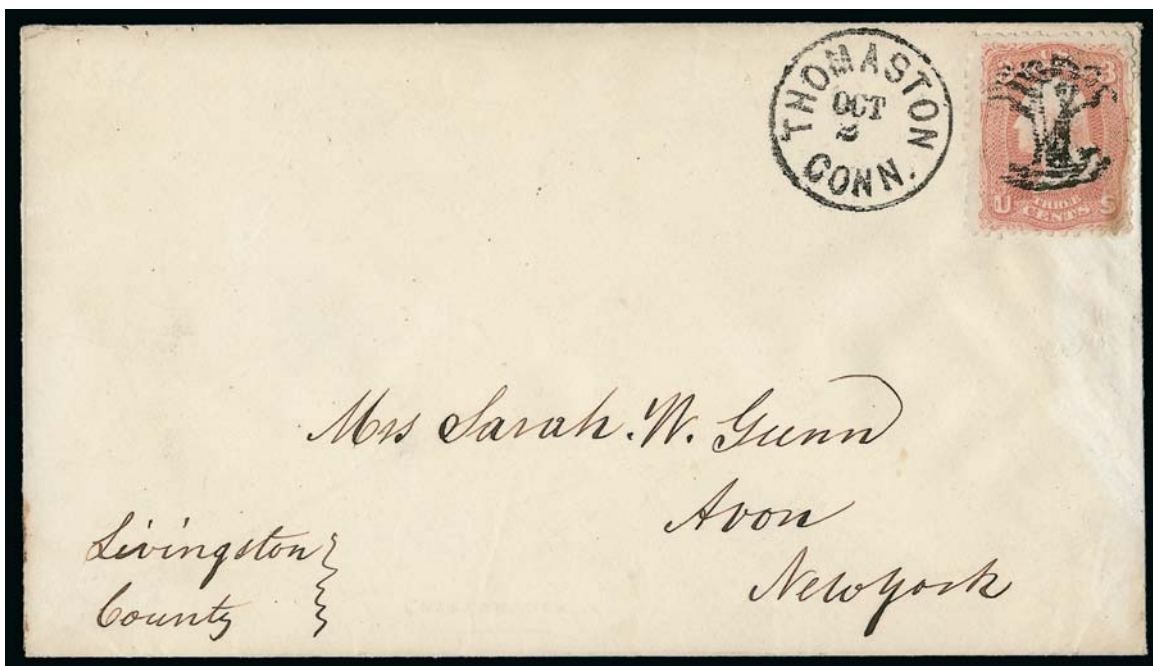 THOMASTON
OCT
2
CONN.
3
U S
THREE
CENTS
Mrs Sarah. W. Gunn
Avon
New York
Livingston
County